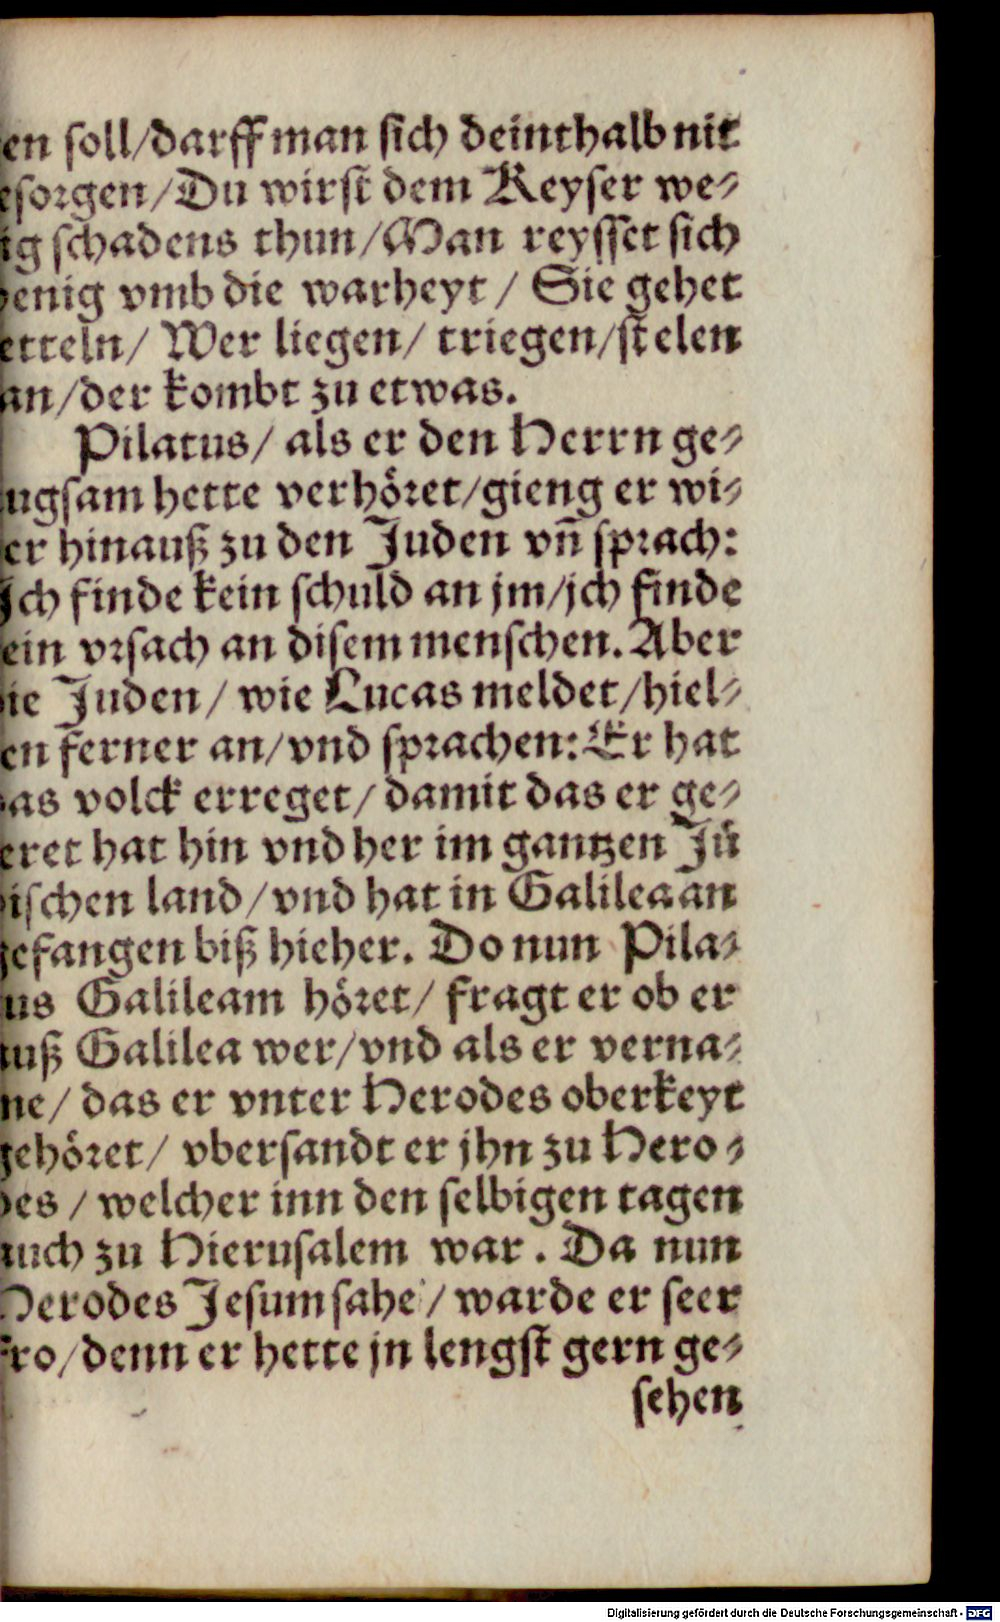 en soll/darff man sich deinthalb nit
esorgen/Du wirst dem Keyser we⸗
ig schadens thun/Man reysset sich
enig vmb die warheyt / Sie gehet
etteln/ Wer liegen/ triegen/stelen
an/der kombt zu etwas.
Pilatus/ als er den Herrn ge⸗
ugsam hette verhöret/gieng er wi⸗
er hinauß zu den Juden vñ sprach:
Ich finde kein schuld an jm/jch finde
ein vrsach an disem menschen. Aber
ie Juden/ wie Lucas meldet/hiel⸗
en ferner an/vnd sprachen: Er hat
as volck erreget/ damit das er ge⸗
eret hat hin vnd her im gantzen Jü
ischen land/vnd hat in Galilea an
gefangen biß hieher. Do nun Pila⸗
us Galileam höret/ fragt er ob er
auß Galilea wer/vnd als er verna⸗
me/ das er vnter Herodes oberkeyt
gehöret/ vbersandt er jhn zu Hero⸗
des / welcher inn den selbigen tagen
auch zu Hierusalem war. Da nun
Herodes Jesum sahe / warde er seer
fro/denn er hette jn lengst gern ge⸗
sehen
Digitalisierung gefördert durch die Deutsche Forschungsgemeinschaft - DFG